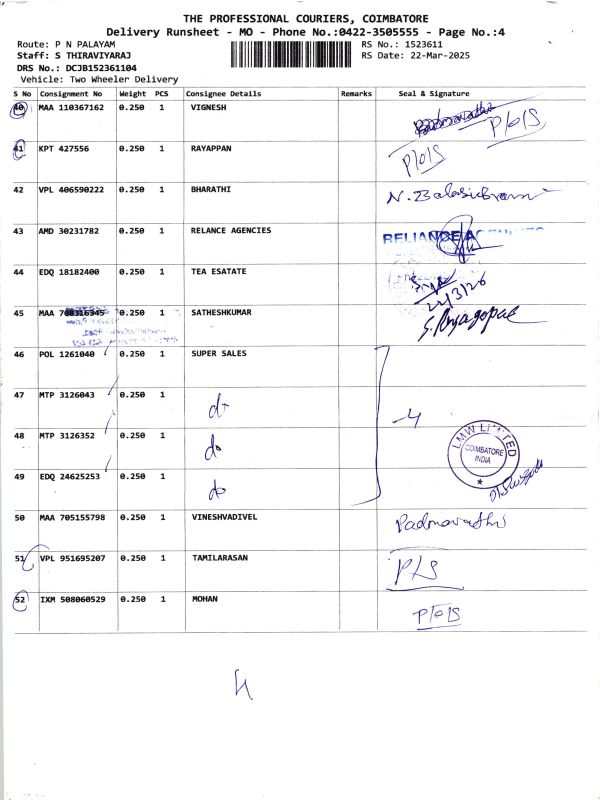 THE PROFESSIONAL COURIERS, COIMBATORE
Delivery Runsheet - MO - Phone No.:0422-3505555 - Page No.:4
Route: P N PALAYAM
RS No.: 1523611
Staff: S THIRAVIYARAJ
RS Date: 22-Mar-2025
DRS No.: DCJB152361104
Vehicle: Two Wheeler Delivery
S No Consignment No Weight PCS Consignee Details Remarks Seal & Signature
40 MAA 110367162 0.250 1 VIGNESH P/o/S
41 KPT 427556 0.250 1 RAYAPPAN P/o/S
42 VPL 406590222 0.250 1 BHARATHI N. Balasubramani
43 AMD 30231782 0.250 1 RELANCE AGENCIES RELIANCE AGENCIES
44 EDQ 18182400 0.250 1 TEA ESATATE
45 MAA 0.250 1 SATHESHKUMAR
46 POL 1261040 0.250 1 SUPER SALES
47 MTP 3126043 0.250 1 do
48 MTP 3126352 0.250 1 do -4
LMW LIMITED
COIMBATORE
INDIA
49 EDQ 24625253 0.250 1 do
50 MAA 705155798 0.250 1 VINESHVADIVEL Padmavathi
51 VPL 951695207 0.250 1 TAMILARASAN P/S
52 IXM 508060529 0.250 1 MOHAN P/o/S